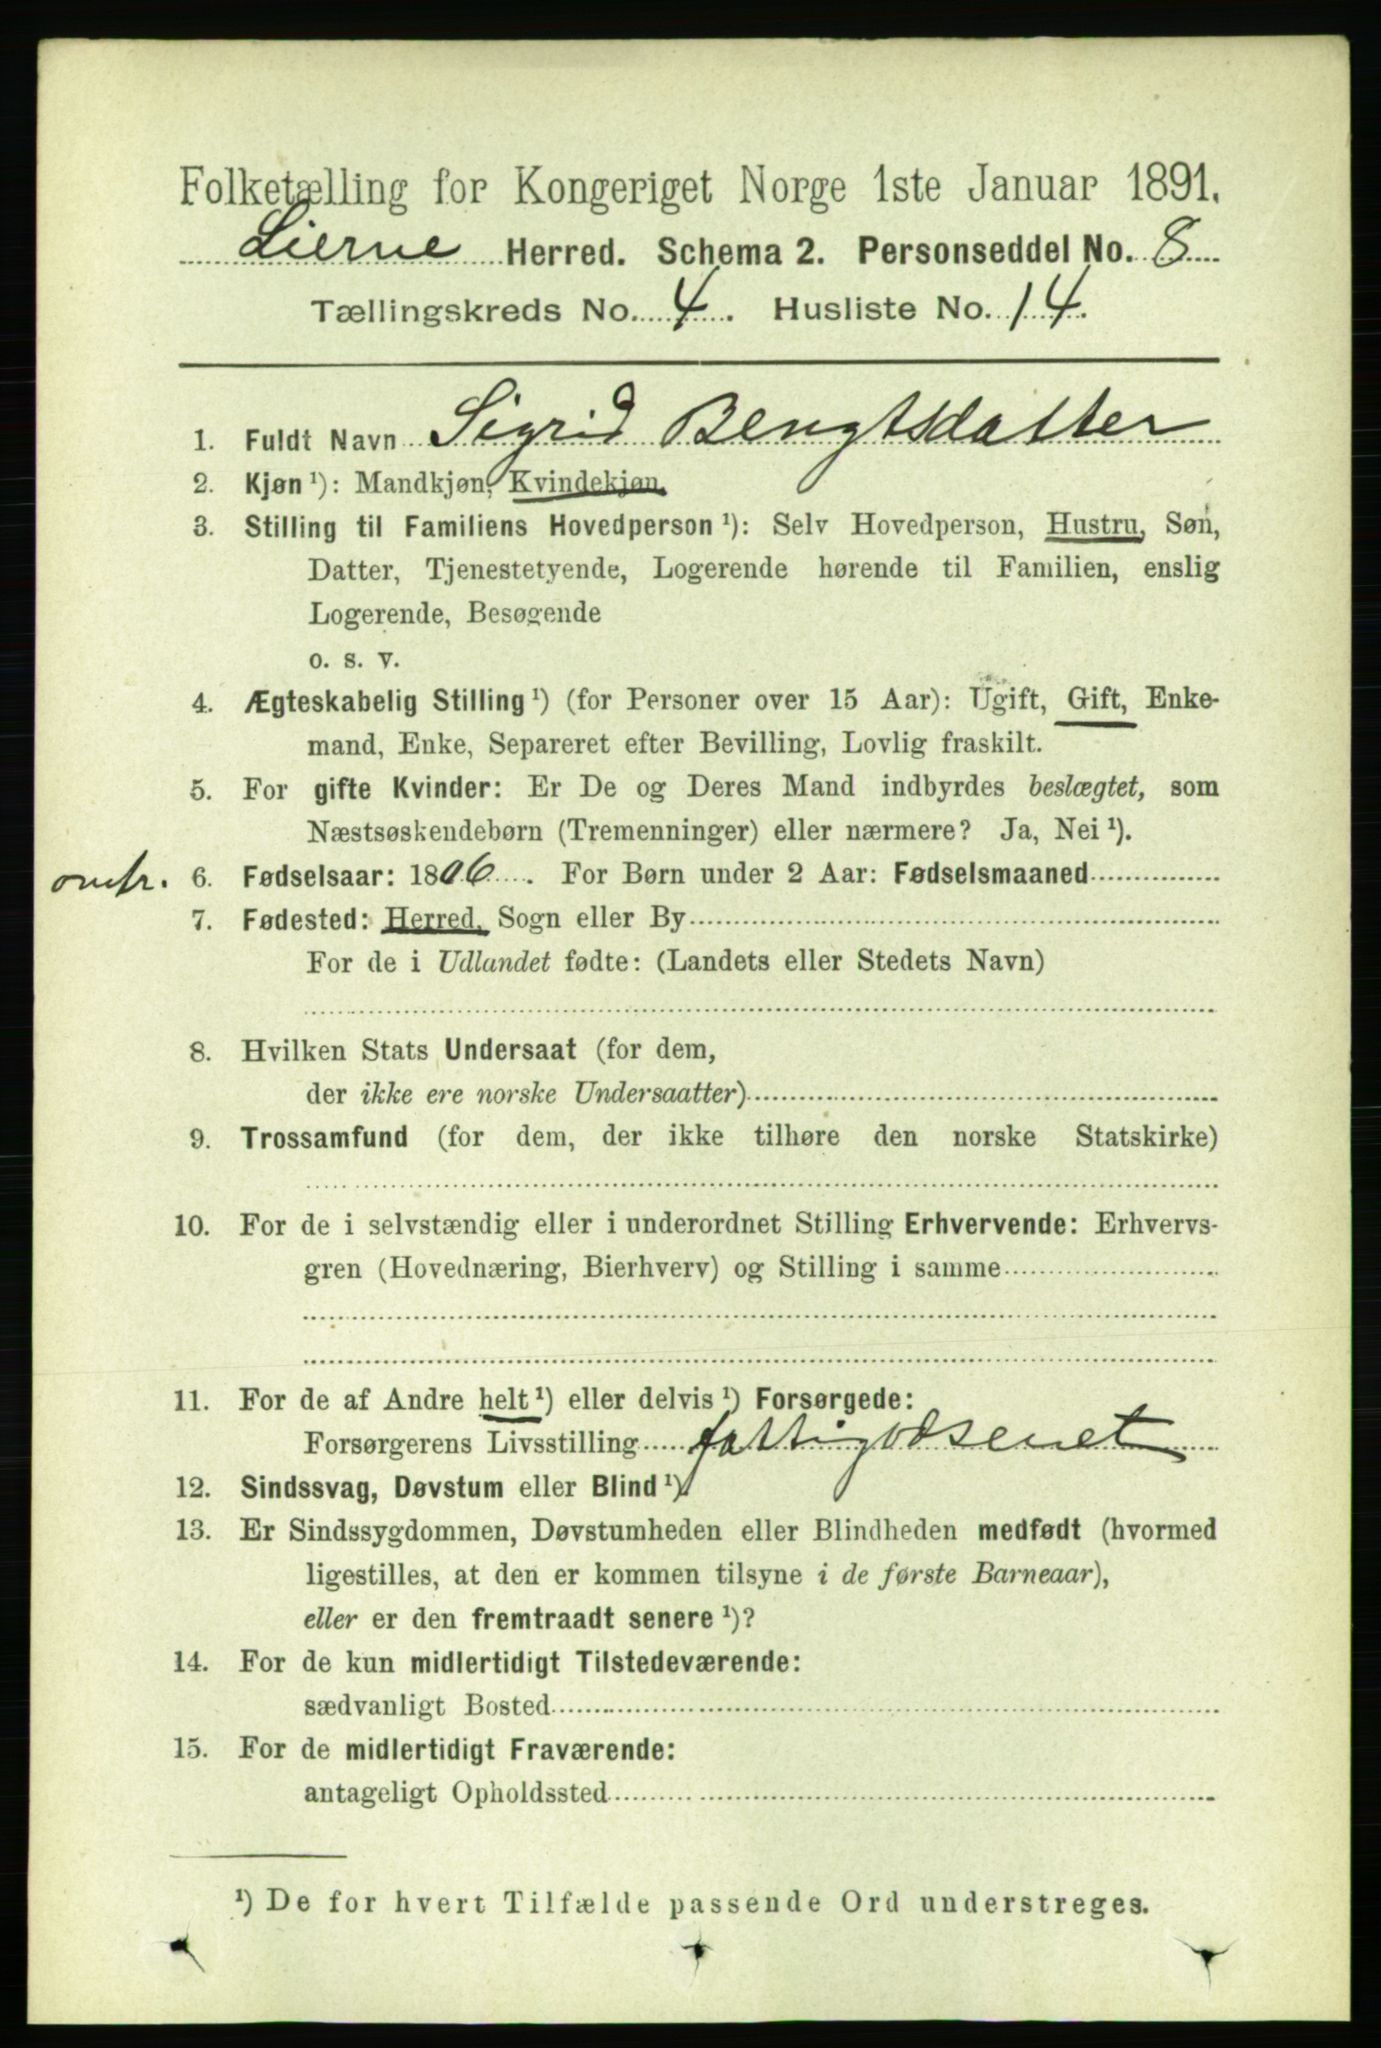 Folketælling for Kongeriget Norge 1ste Januar 1891.
Lierne Herred. Schema 2. Personseddel No. 8
Tællingskreds No. 4. Husliste No. 14.
1. Fuldt Navn Sigrid Bengtsdatter
2. Kjøn ¹): Mandkjøn, Kvindekjøn.
3. Stilling til Familiens Hovedperson ¹): Selv Hovedperson, Hustru, Søn,
Datter, Tjenestetyende, Logerende hørende til Familien, enslig
Logerende, Besøgende
o. s. v.
4. Ægteskabelig Stilling ¹) (for Personer over 15 Aar): Ugift, Gift, Enke-
mand, Enke, Separeret efter Bevilling, Lovlig fraskilt.
5. For gifte Kvinder: Er De og Deres Mand indbyrdes beslægtet, som
Næstsøskendebørn (Tremenninger) eller nærmere? Ja, Nei ¹).
omtr. 6. Fødselsaar: 1806. For Børn under 2 Aar: Fødselsmaaned
7. Fødested: Herred, Sogn eller By
For de i Udlandet fødte: (Landets eller Stedets Navn)
8. Hvilken Stats Undersaat (for dem,
der ikke ere norske Undersaatter)
9. Trossamfund (for dem, der ikke tilhøre den norske Statskirke)
10. For de i selvstændig eller i underordnet Stilling Erhvervende: Erhvervs-
gren (Hovednæring, Bierhverv) og Stilling i samme
11. For de af Andre helt ¹) eller delvis ¹) Forsørgede:
Forsørgerens Livsstilling fattigvæsenet
12. Sindssvag, Døvstum eller Blind ¹).
13. Er Sindssygdommen, Døvstumheden eller Blindheden medfødt (hvormed
ligestilles, at den er kommen tilsyne i de første Barneaar),
eller er den fremtraadt senere ¹)?
14. For de kun midlertidigt Tilstedeværende:
sædvanligt Bosted
15. For de midlertidigt Fraværende:
antageligt Opholdssted
¹) De for hvert Tilfælde passende Ord understreges.